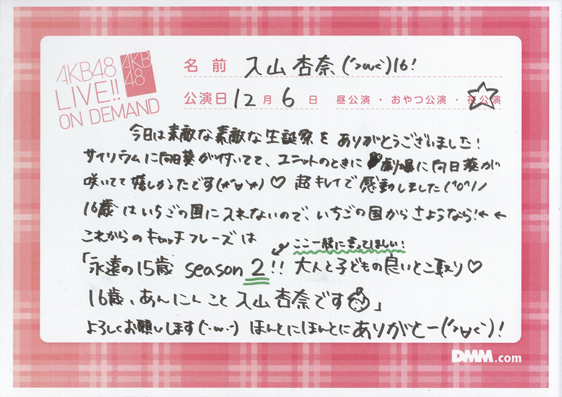 AKB48
LIVE!!
ON DEMAND
AKB
48
名前 入山杏奈(´>ω<`)16!
公演日 12月6日 昼公演・おやつ公演・夜公演
今日は素敵な素敵な生誕祭をありがとうございました!
サイリウムに向日葵が付いてて、ユニットのときに劇場に向日葵が
咲いてて嬉しかったです(*'ω'*)♡ 超キレイで感動しました(^o^)/
16歳はいちごの国に入れないので、いちごの国からさようなら!←←
これからのキャッチフレーズは
ここ一緒に言ってほしい!
「永遠の15歳 season 2!! 大人と子どもの良いとこ取り♡
16歳、あんにんこと入山杏奈です」
よろしくお願いします(´・ω・`) ほんとにほんとにありがとー(´>ω<`)!
DMM.com